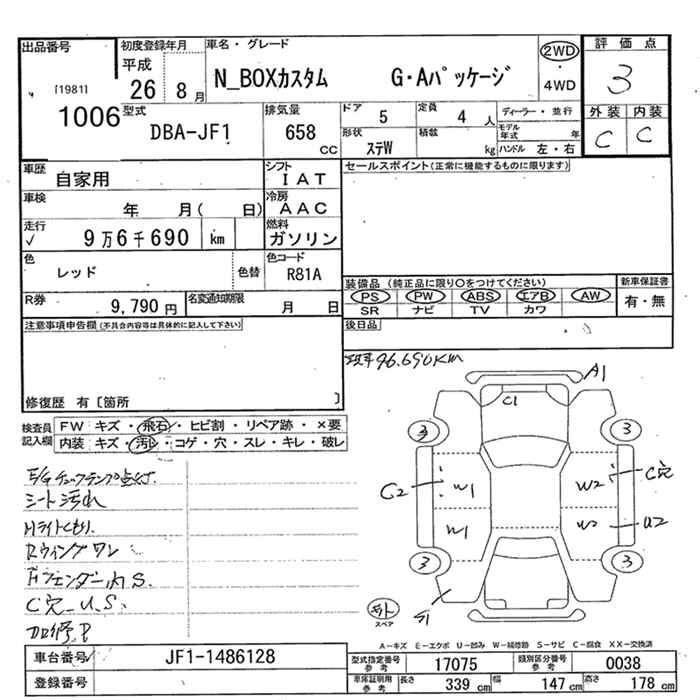 出品番号 初度登録年月 車名・グレード 評価点
平成 26 8月 N_BOXカスタム G・Aパッケージ 2WD 3
[1981] 4WD
1006 型式 排気量 ドア 5 定員 4人 ディーラー・並行 外装 内装
DBA-JF1 658 cc 形状 ステW 積載 kg モデル年式 年 C C
ハンドル 左・右
車歴 自家用 シフト IAT セールスポイント(正常に機能するものに限ります)
車検 年 月( 日) 冷房 AAC
走行 ✓ 9万6千690 km 燃料 ガソリン
色 レッド 色替 色コード R81A
装備品 (純正品に限り○をつけてください) 新車保証書
PS PW ABS エアB AW 有・無
SR ナビ TV カワ
R券 9,790円 名変通知期限 月 日
後日品
注意事項申告欄(不具合内容等は具体的に記入して下さい)
96.690KM
修復歴 有〔箇所 〕
検査員記入欄 FW キズ・飛石・ヒビ割・リペア跡・×要
内装 キズ・汚レ・コゲ・穴・スレ・キレ・破レ
E/Gチェックランプ点灯
シート汚れ
Hライトくもり
Rウィングワレ
C穴 U.S.
A1
C1
3 3
C2 W1 W2 C穴
W1 W2 U2
3 3
スペア
A-キズ E-エクボ U-凹み W-補修跡 S-サビ C-腐食 XX-交換済
車台番号 JF1-1486128 型式指定番号 参考 17075 類別区分番号 参考 0038
登録番号 車庫証明用 参考 長さ 339cm 幅 147cm 高さ 178cm